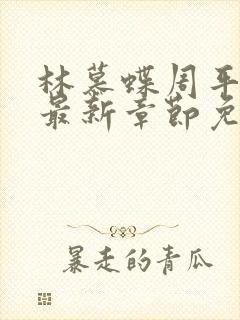 林慕蝶周平
最新章节免
暴走的青瓜